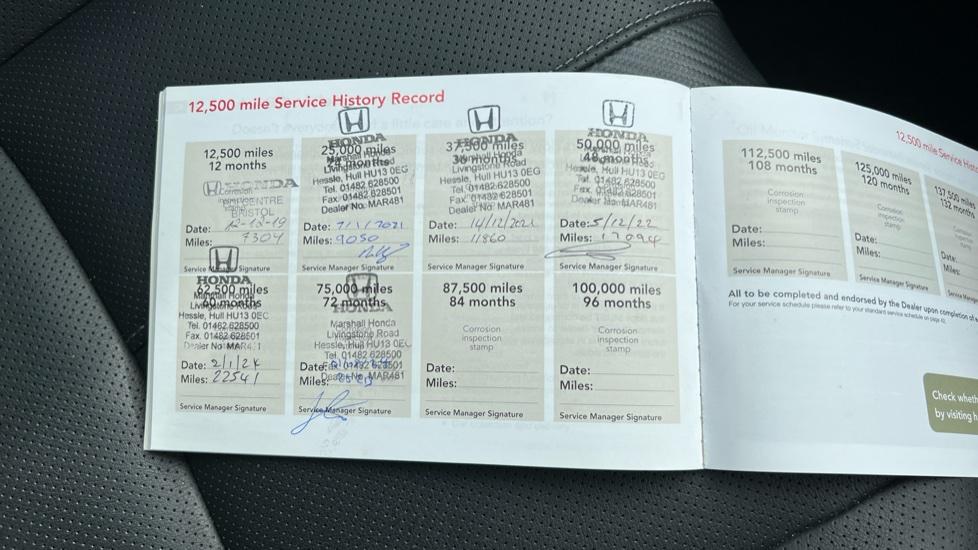 12,500 mile Service History Record
12,500 miles
12 months
HONDA
Corrosion
inspection
BRISTOL
Date: 12-12-19
Miles: 7304
Service Manager Signature
HONDA
25,000 miles
Marshall Honda
Livingstone Road
Hessle, Hull HU13 0EG
Tel. 01482 628500
Fax. 01482 628501
Dealer No. MAR481
Date: 7/1/2021
Miles: 9050
Service Manager Signature
HONDA
37,500 miles
Livingstone Road
Hessle, Hull HU13 0EG
Tel. 01482 628500
Fax. 01482 628501
Dealer No. MAR481
Date: 14/12/2021
Miles: 11860
Service Manager Signature
HONDA
50,000 miles
48 months
Hessle, Hull HU13 0EG
Tel. 01482 628500
Fax. 01482 628501
Dealer No. MAR481
Date: 5/12/22
Miles: 17094
Service Manager Signature
HONDA
62,500 miles
60 months
Hessle, Hull HU13 0EG
Tel. 01482 628500
Fax. 01482 628501
Dealer No. MAR481
Date: 2/1/24
Miles: 22541
Service Manager Signature
75,000 miles
72 months
HONDA
Marshall Honda
Livingstone Road
Hessle, Hull HU13 0EG
Tel. 01482 628500
Fax. 01482 628501
Dealer No. MAR481
Date:
Miles:
Service Manager Signature
87,500 miles
84 months
Corrosion
inspection
stamp
Date:
Miles:
Service Manager Signature
100,000 miles
96 months
Corrosion
inspection
stamp
Date:
Miles:
Service Manager Signature
12,500 mile Service
112,500 miles
108 months
Corrosion
inspection
stamp
Date:
Miles:
Service Manager Signature
125,000 miles
120 months
Corrosion
inspection
stamp
Date:
Miles:
Service Manager Signature
137,500
132
Date:
Miles:
All to be completed and endorsed by the Dealer upon completion of
For your service schedule please refer to your standard service schedule on page
Check
by visiting